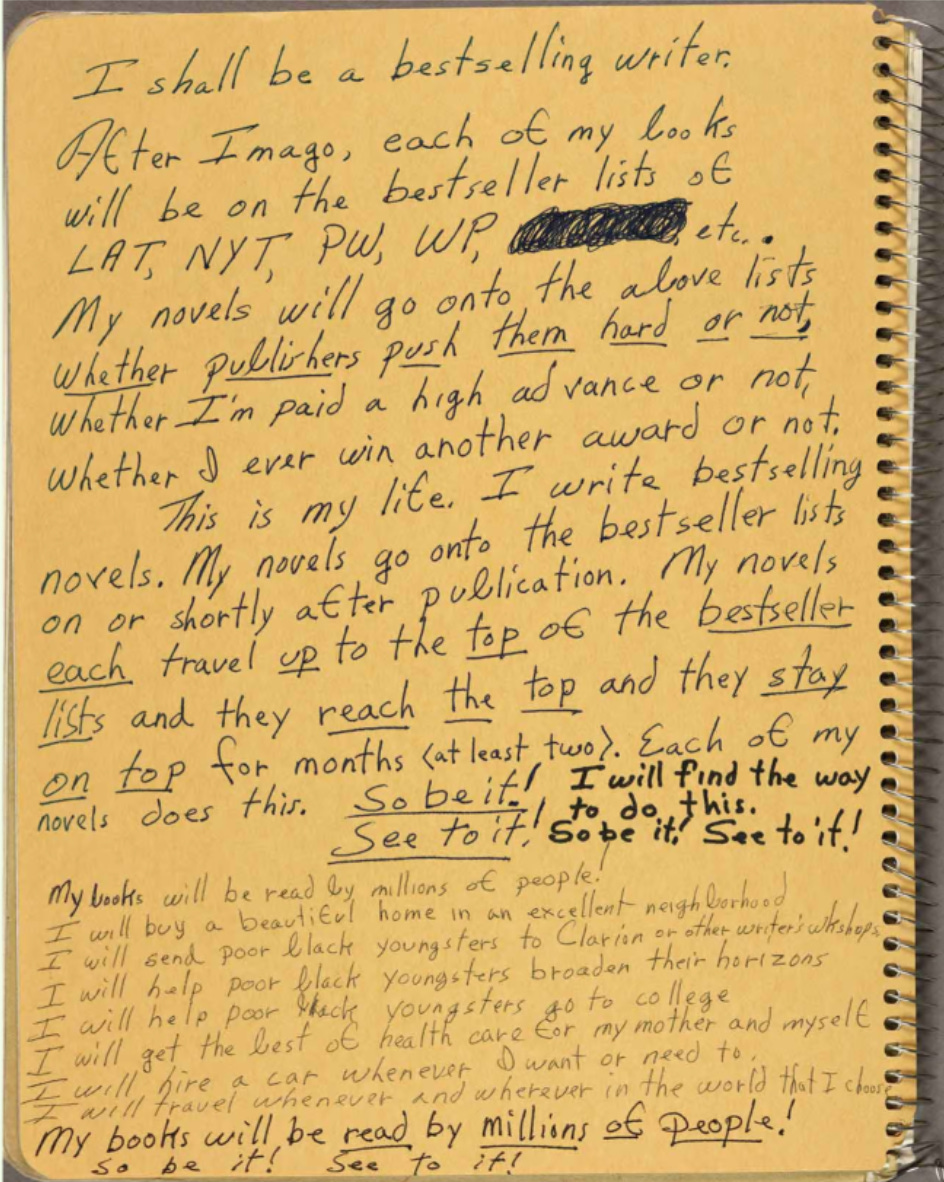 I shall be a bestselling writer.
After Imago, each of my books
will be on the bestseller lists of
LAT, NYT, PW, WP, , etc..
My novels will go onto the above lists
whether publishers push them hard or not,
whether I'm paid a high advance or not,
whether I ever win another award or not.
This is my life. I write bestselling
novels. My novels go onto the bestseller lists
on or shortly after publication. My novels
each travel up to the top of the bestseller
lists and they reach the top and they stay
on top for months (at least two). Each of my
novels does this. So be it! I will find the way
to do this.
See to it! So be it! See to it!
My books will be read by millions of people!
I will buy a beautiful home in an excellent neighborhood
I will send poor black youngsters to Clarion or other writer's wkshops
I will help poor black youngsters broaden their horizons
I will help poor black youngsters go to college
I will get the best of health care for my mother and myself
I will hire a car whenever I want or need to.
I will travel whenever and wherever in the world that I choose
My books will be read by millions of people!
So be it! See to it!